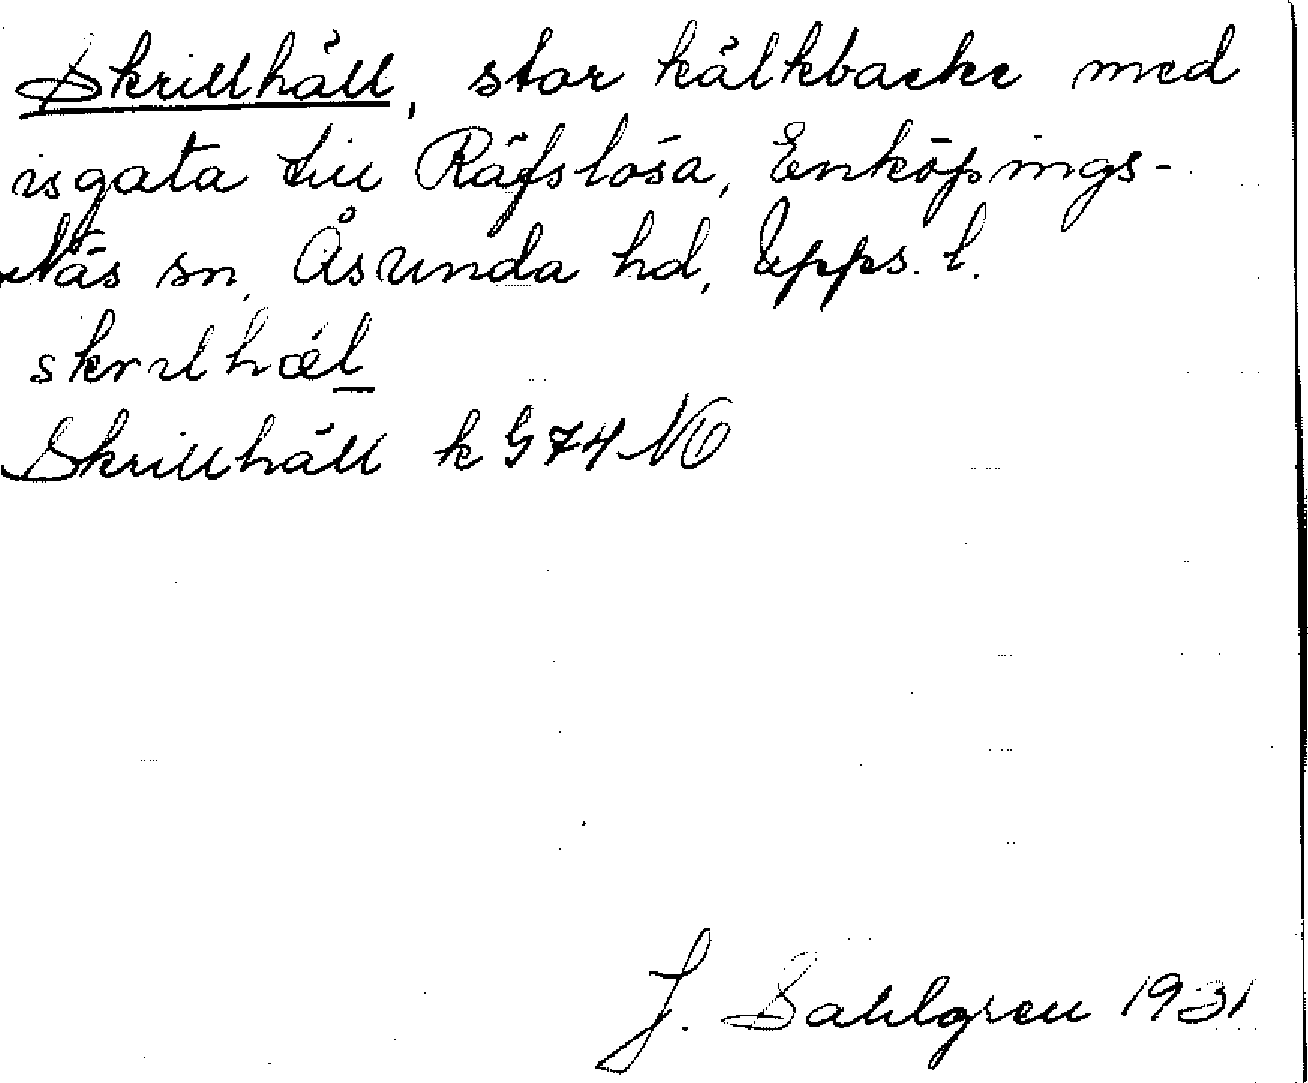 Skrillhäll, stor kälkbacke med
isgata till Räfslösa, Enköpings-
Näs sn, Åsunda hd, Upps. l.
skrilhæl
Skrillhäll k G 74 NO
J. Dahlgren 1931